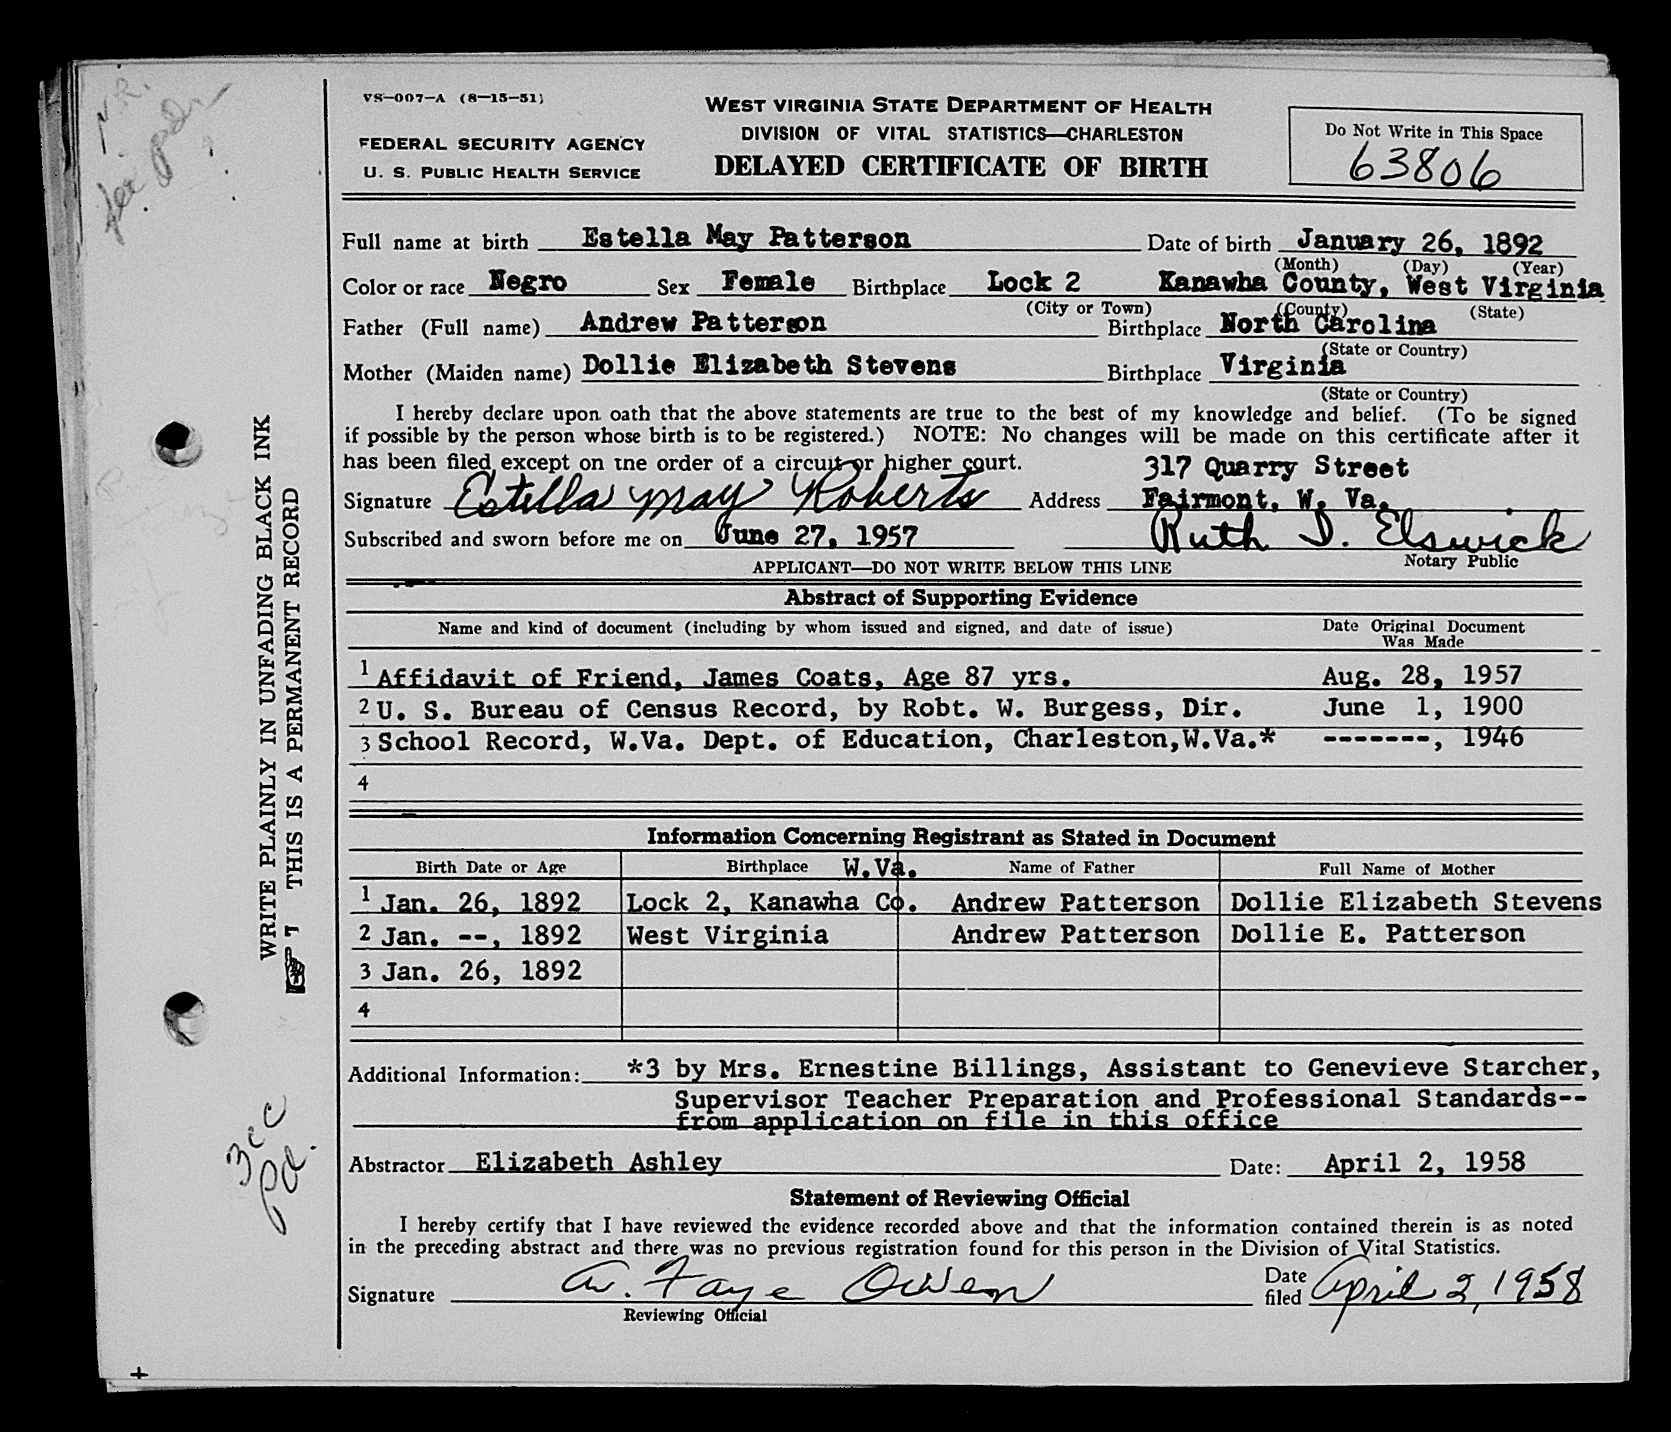 VS-007-A (8-15-51)
FEDERAL SECURITY AGENCY
U. S. PUBLIC HEALTH SERVICE
WEST VIRGINIA STATE DEPARTMENT OF HEALTH
DIVISION OF VITAL STATISTICS—CHARLESTON
DELAYED CERTIFICATE OF BIRTH
Do Not Write in This Space
63806
Full name at birth Estella May Patterson Date of birth January 26, 1892
(Month) (Day) (Year)
Color or race Negro Sex Female Birthplace Lock 2 Kanawha County, West Virginia
(City or Town) (County) (State)
Father (Full name) Andrew Patterson Birthplace North Carolina
(State or Country)
Mother (Maiden name) Dollie Elizabeth Stevens Birthplace Virginia
(State or Country)
I hereby declare upon oath that the above statements are true to the best of my knowledge and belief. (To be signed
if possible by the person whose birth is to be registered.) NOTE: No changes will be made on this certificate after it
has been filed except on the order of a circuit or higher court.
317 Quarry Street
Signature Estella May Roberts Address Fairmont, W. Va.
Subscribed and sworn before me on June 27, 1957 Ruth D. Elswick
Notary Public
APPLICANT—DO NOT WRITE BELOW THIS LINE
Abstract of Supporting Evidence
Name and kind of document (including by whom issued and signed, and date of issue) Date Original Document
Was Made
1 Affidavit of Friend, James Coats, Age 87 yrs. Aug. 28, 1957
2 U. S. Bureau of Census Record, by Robt. W. Burgess, Dir. June 1, 1900
3 School Record, W.Va. Dept. of Education, Charleston,W.Va.* -------, 1946
4
Information Concerning Registrant as Stated in Document
Birth Date or Age Birthplace W.Va. Name of Father Full Name of Mother
1 Jan. 26, 1892 Lock 2, Kanawha Co. Andrew Patterson Dollie Elizabeth Stevens
2 Jan. --, 1892 West Virginia Andrew Patterson Dollie E. Patterson
3 Jan. 26, 1892
4
Additional Information: *3 by Mrs. Ernestine Billings, Assistant to Genevieve Starcher,
Supervisor Teacher Preparation and Professional Standards--
from application on file in this office
Abstractor Elizabeth Ashley Date: April 2, 1958
Statement of Reviewing Official
I hereby certify that I have reviewed the evidence recorded above and that the information contained therein is as noted
in the preceding abstract and there was no previous registration found for this person in the Division of Vital Statistics.
Signature A. Faye Owen Date filed April 2, 1958
Reviewing Official
WRITE PLAINLY IN UNFADING BLACK INK
THIS IS A PERMANENT RECORD
3cc
Pd.